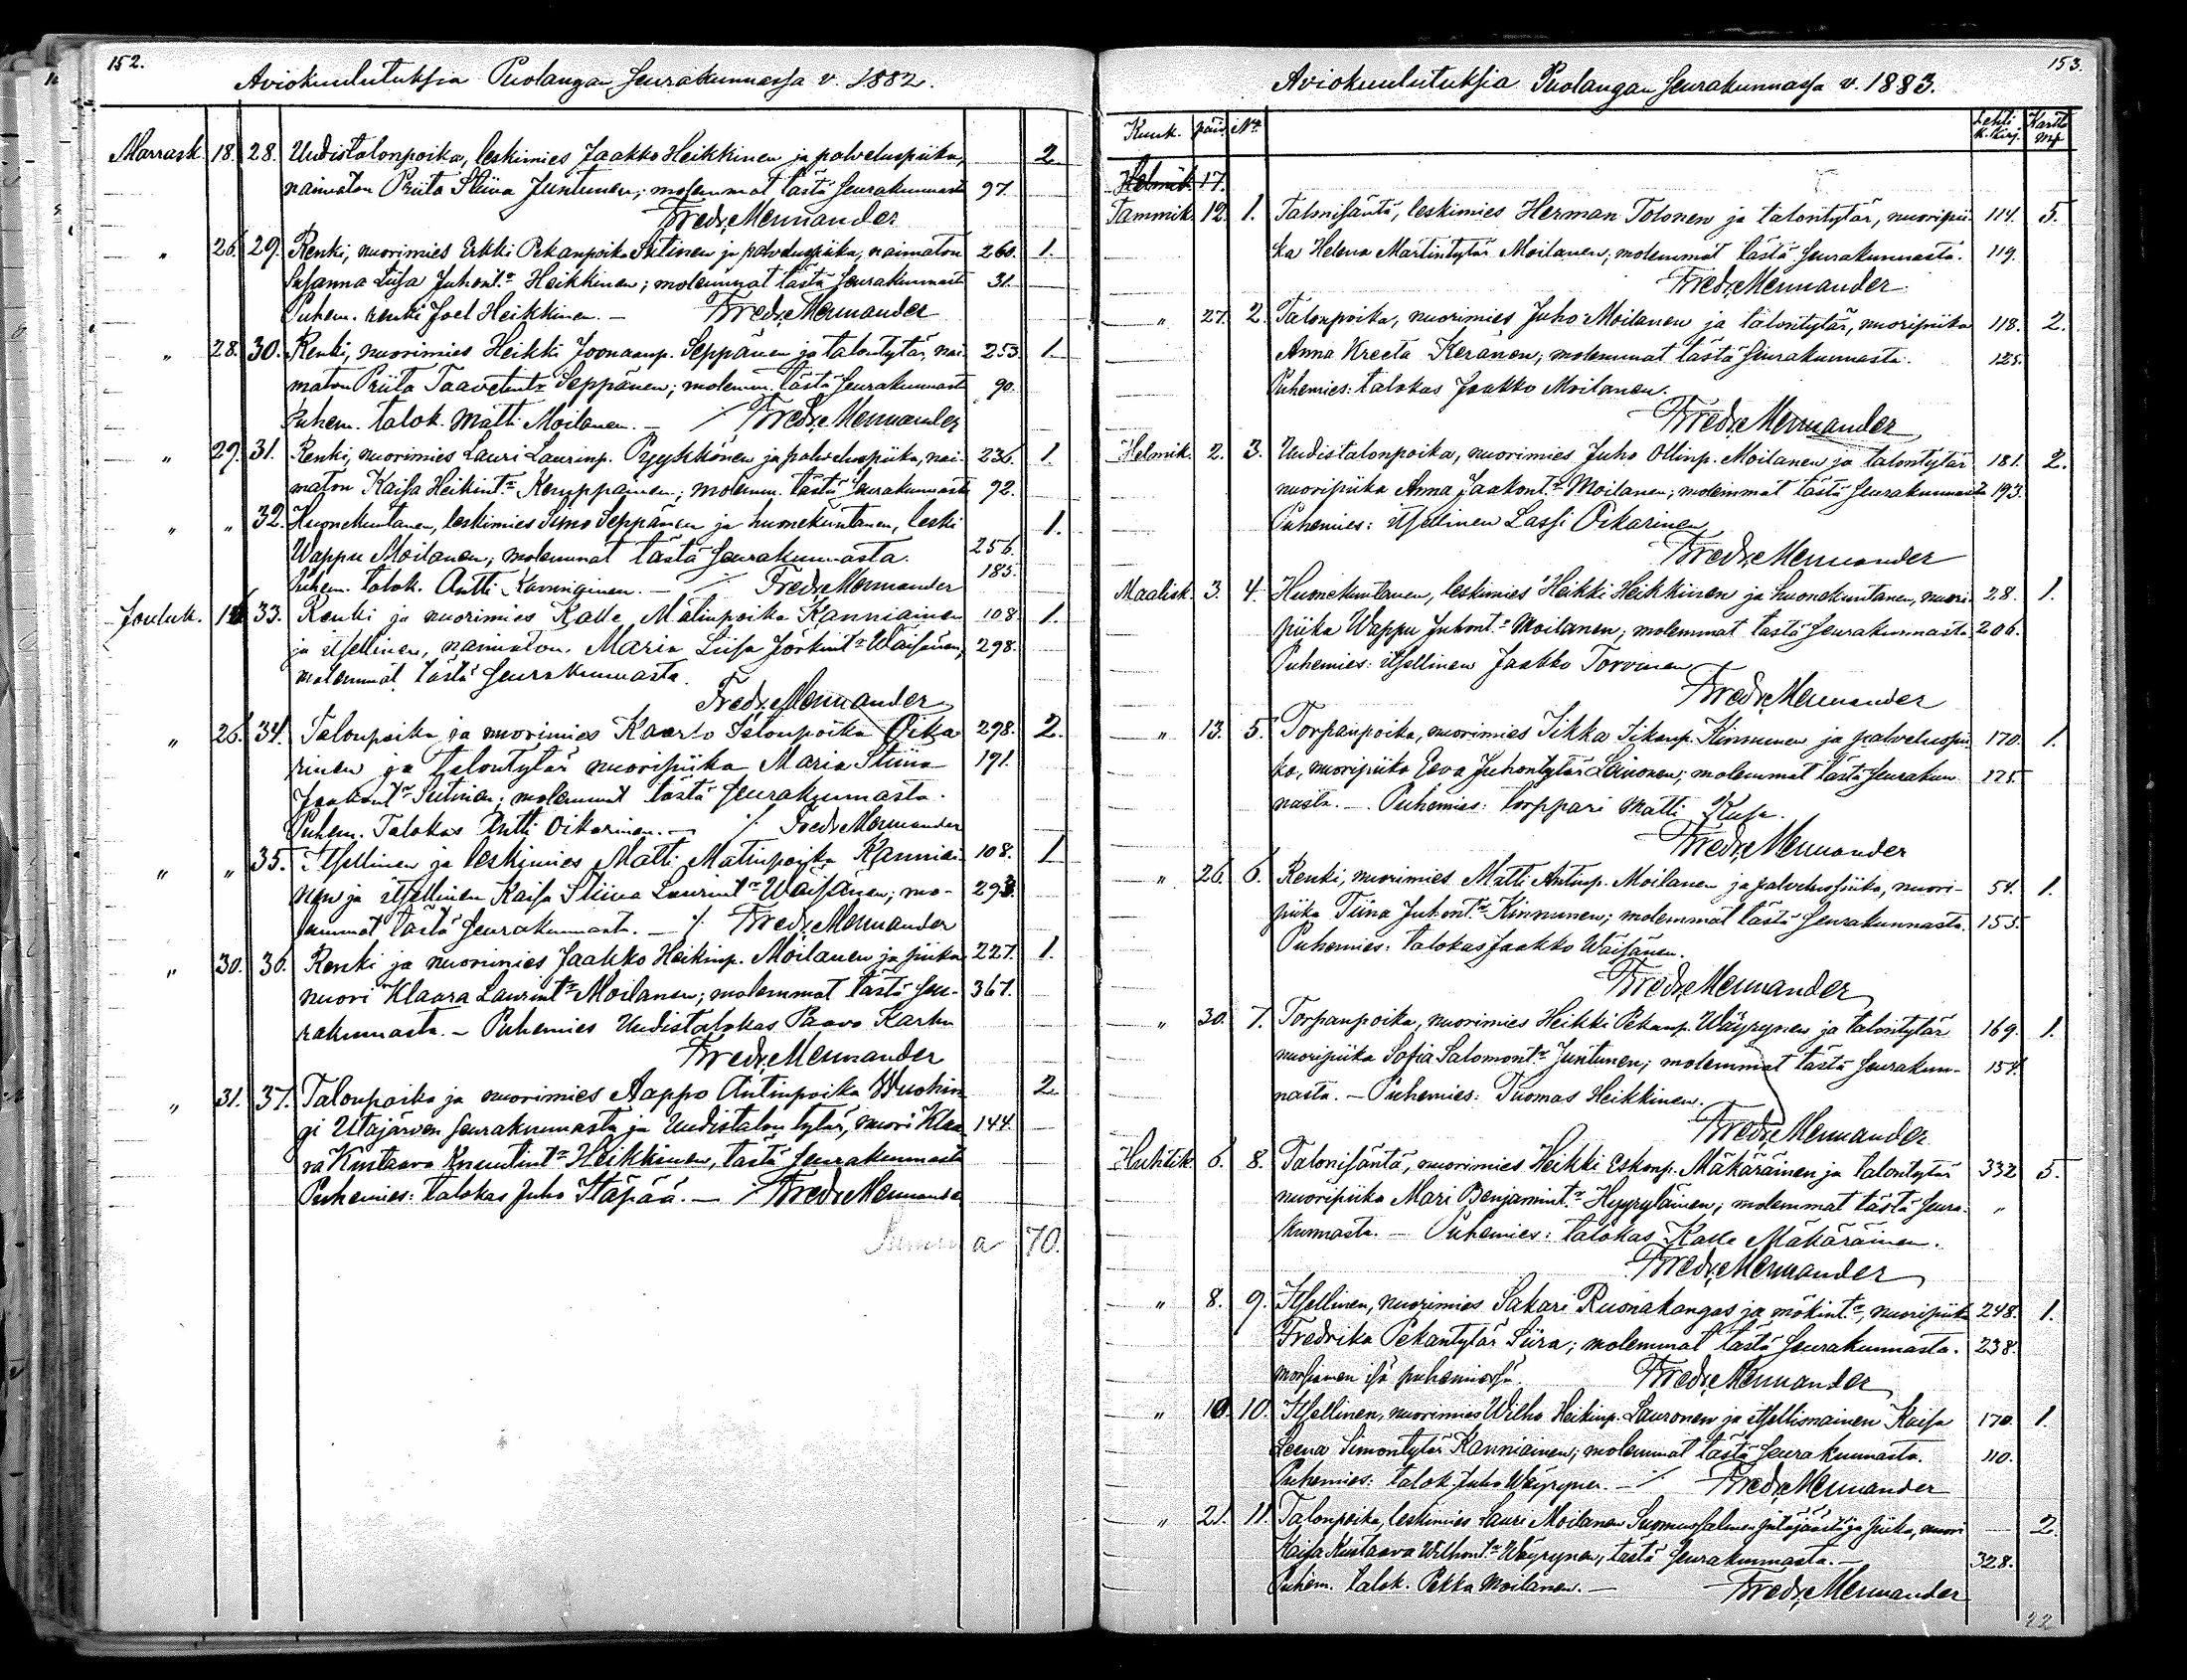 152.
Aviokuulutuksia Puolangan seurakunnassa v. 1882.
Marrask. 18. 28. Uudistalonpoika, leskimies Jaakko Heikkinen ja palveluspiika, 2
naimaton Priita Stiina Juntunen; molemmat tästä seurakunnasta 97.
Fredr. Mennander
" 26. 29. Renki, nuorimies Erkki Pekanpoika ja palveluspiika, naimaton 260. 1.
Susanna Liisa Juhont:r Heikkinen; molemmat tästä seurakunnasta 31.
Puhem. renki Joel Heikkinen. — Fredr. Mennander
" 28. 30. Renki, nuorimies Heikki Joonaanp. Seppänen ja talontytär, nai- 253 1.
maton Priita Taavetintr Seppänen; molemm. tästä seurakunnasta 90.
Puhem. talok. Matti Moilanen. — ./. Fredr. Mennander
" 29. 31. Renki, nuorimies Lauri Laurinp. Pyykkönen ja palveluspiika, nai- 236. 1.
maton Kaisa Heikint:r Kemppainen; molemm. tästä seurakunnasta 92.
" " 32. Huonekuntanen, leskimies Simo Seppänen ja huonekuntanen, leski 1.
Wappu Moilanen; molemmat tästä seurakunnasta. 256.
Puhem. talok. Antti — ./. Fredr. Mennander 185.
Jouluk. 33. Renki ja nuorimies Kalle Matinpoika Kanniainen 108 1.
ja itsellinen, naimaton Maria Liisa Jörkint:r Wäisänen, 298.
molemmat tästä seurakunnasta.
Fredr. Mennander
" 26. 34. Talonpoika ja nuorimies Kaarlo Talonpoika Oika 298. 2.
rinen ja talontytär nuoripiika Maria Stiina 191.
Jaakont:r Sutinen; molemmat tästä seurakunnasta.
Puhem. Talokas Antti Oikarinen. — ./. Fredr. Mennander
" " 35. Itsellinen ja leskimies Matti Matinpoika Kanniai- 108. 1
nen ja itsellinen Kaisa Stiina Laurint:r Wäisänen; mo- 293.
lemmat tästä seurakunnasta. — ./. Fredr. Mennander
" 30. 36. Renki ja nuorimies Jaakko Heikinp. Moilanen ja piika 227. 1.
nuori Klaara Laurint:r Moilanen; molemmat tästä seu- 367.
rakunnasta. - Puhemies Uudistalokas Paavo Karhu
Fredr. Mennander
" 31. 37. Talonpoika ja nuorimies Aappo Antinpoika Wuohin 2
gi Utajärven seurakunnasta ja Uudistalon tytär, nuori Klaa 144.
ra Kustaava Heikkinen, tästä seurakunnasta
Puhemies: talokas Juho Itäpää. — ./. Fredr. Mennander
Summa 70.
153.
Aviokuulutuksia Puolangan seurakunnassa v. 1883.
Kuuk. päiv. No. Lehti k. kirj. Kartta mk
Helmik. 17.
Tammik. 12. 1. Talonisäntä, leskimies Herman Tolonen ja talontytär, nuoripii- 114. 5.
ka Helena Martintytär Moilanen; molemmat tästä seurakunnasta. 119.
Fredr. Mennander
" 27. 2. Talonpoika, nuorimies Juho Moilanen ja talontytär, nuoripiika 118. 2.
Anna Kreeta Keränen; molemmat tästä seurakunnasta. 125.
Puhemies: talokas Jaakko Moilanen.
Fredr. Mennander
Helmik. 2. 3. Uudistalonpoika, nuorimies Juho Ollinp. Moilanen ja talontytär 181. 2.
nuoripiika Anna Jaakont:r Moilanen; molemmat tästä seurakunnasta 193.
Puhemies: itsellinen Lassi Oikarinen
Fredr. Mennander
Maalisk. 3. 4. Huonekuntanen, leskimies Heikki Heikkinen ja huonekuntanen, nuori- 28. 1.
piika Wappu Juhont:r Moilanen; molemmat tästä seurakunnasta 206.
Puhemies: itsellinen Jaakko Torvinen
Fredr. Mennander
" 13. 5. Torpanpoika, nuorimies Iikka Iikanp. Kinnunen ja palveluspii 170. 1.
ka, nuoripiika Eeva Juhontytär Leinonen; molemmat tästä seurakun- 175.
nasta. — Puhemies: torppari Matti
Fredr. Mennander
" 26. 6. Renki, nuorimies Matti Antinp. Moilanen ja palveluspiika, nuori- 54. 1.
piika Tiina Juhont:r Kinnunen; molemmat tästä seurakunnasta. 153.
Puhemies: talokas Jaakko Wäisänen.
Fredr. Mennander
" 30. 7. Torpanpoika, nuorimies Heikki Pekanp. Wäyrynen ja talontytär 169. 1.
nuoripiika Sofia Salomont:r Juntunen; molemmat tästä seurakun- 154.
nasta. — Puhemies: Tuomas Heikkinen.
Fredr. Mennander
Huhtik. 6. 8. Talonisäntä, nuorimies Heikki Eskonp. Mäkäräinen ja talontytär 332 5.
nuoripiika Mari Benjamint:r Hyyryläinen; molemmat tästä seura- "
kunnasta. — Puhemies: talokas Kalle Mäkäräinen.
Fredr. Mennander
" 8. 9. Itsellinen, nuorimies Sakari Ruonakangas ja mökint:r, nuoripiika 248. 1.
Fredrika Pekantytär Siira; molemmat tästä seurakunnasta. 238.
morsiamen isä puhemiessä. Fredr. Mennander
" 10. 10. Itsellinen, nuorimies Wilho Heikinp. Lauronen ja itsellisnainen Kaisa 170. 1.
Leena Simontytär Kanniainen; molemmat tästä seurakunnasta. 110.
Puhemies: talok. Juho Wäyrynen. — ./. Fredr. Mennander
" 21. 11. Talonpoika, leskimies Lauri Moilanen Suomussalmen pitäjästä ja piika, nuori — 2.
Kaisa Kustaava Wilhont:r Wäyrynen, tästä seurakunnasta. — 328.
Puhem. talok. Pekka Moilanen. — Fredr. Mennander
22